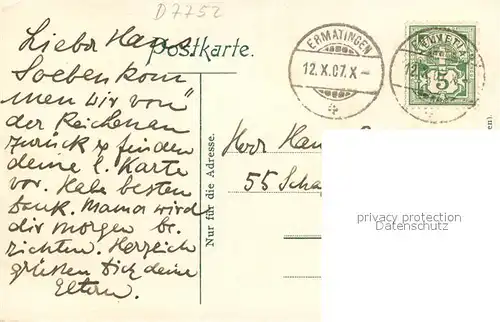 D7752
Lieber Hans
Postkarte.
Soeben kom
men wir von
der Reichenau
zurück & finden
deine l. Karte
vor. Habe besten
Dank. Mama wird
dir morgen be.
richten. Herzlich
grüssen Dich deine
Eltern.
Nur für die Adresse.
ERMATINGEN
12.X.07.X-
12.X
HELVETIA
5
Herr Han
55 Scha
privacy protection
veikkos.com